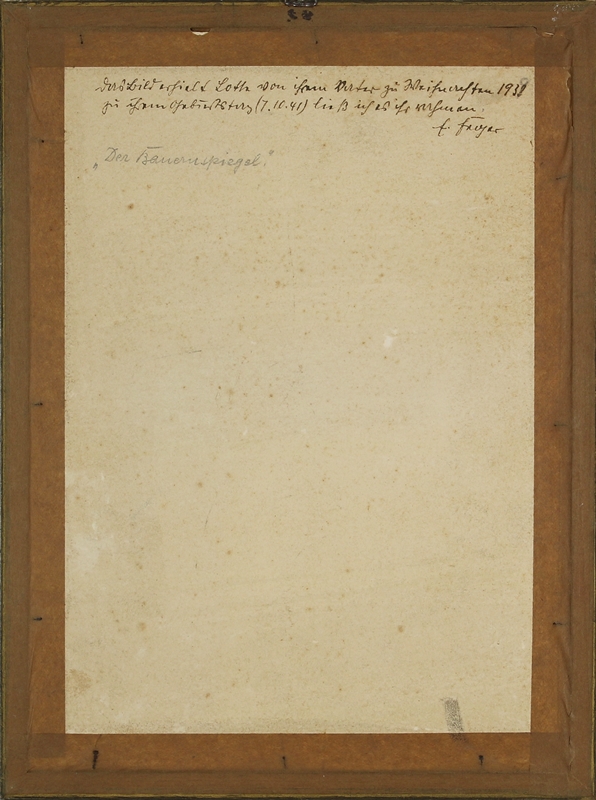 Das Bild erhielt Lotte von ihrem Vater zu Weihnachten 193
zu ihrem Geburtstag (7.10.41) ließ ich es ihr rahmen.
„Der Bauernspiegel."